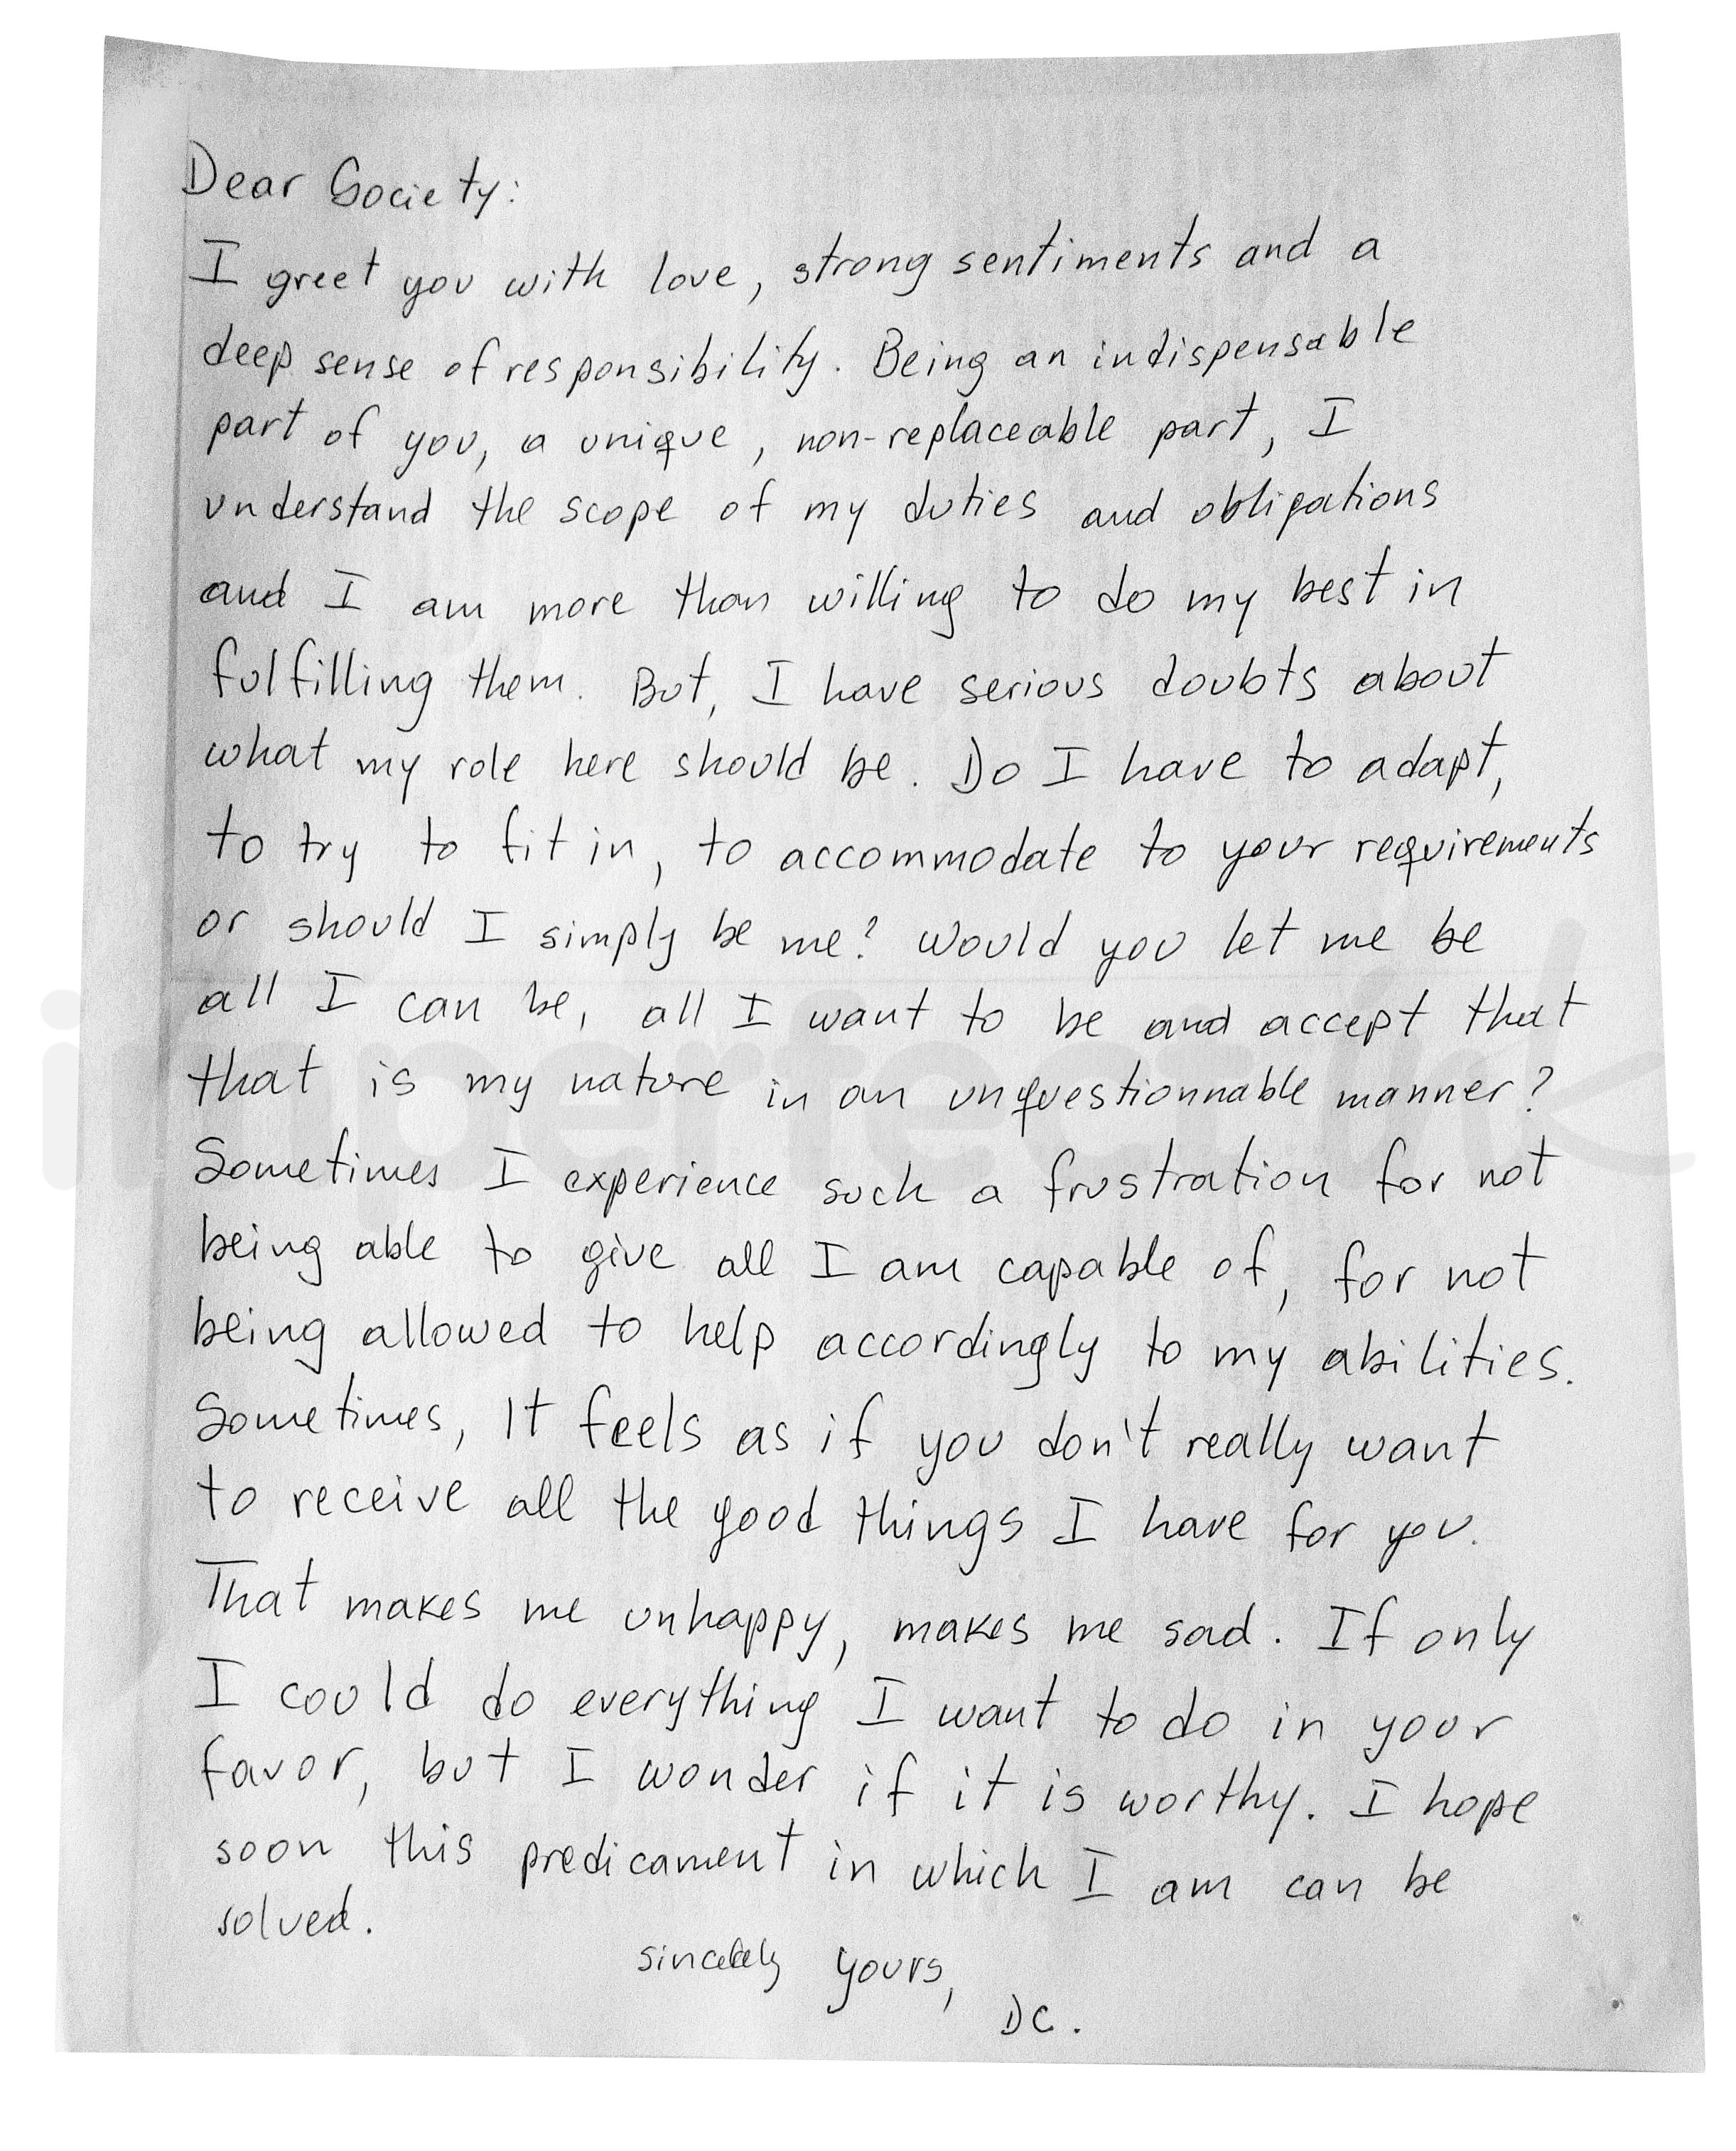 Dear Society:
I greet you with love, strong sentiments and a
deep sense of responsibility. Being an indispensable
part of you, a unique, non-replaceable part, I
understand the scope of my duties and obligations
and I am more than willing to do my best in
fulfilling them. But, I have serious doubts about
what my role here should be. Do I have to adapt,
to try to fit in, to accommodate to your requirements
or should I simply be me? Would you let me be
all I can be, all I want to be and accept that
that is my nature in an unquestionnable manner?
Sometimes I experience such a frustration for not
being able to give all I am capable of, for not
being allowed to help accordingly to my abilities.
Sometimes, It feels as if you don't really want
to receive all the good things I have for you.
That makes me unhappy, makes me sad. If only
I could do everything I want to do in your
favor, but I wonder if it is worthy. I hope
soon this predicament in which I am can be
solved.
yours,
DC.